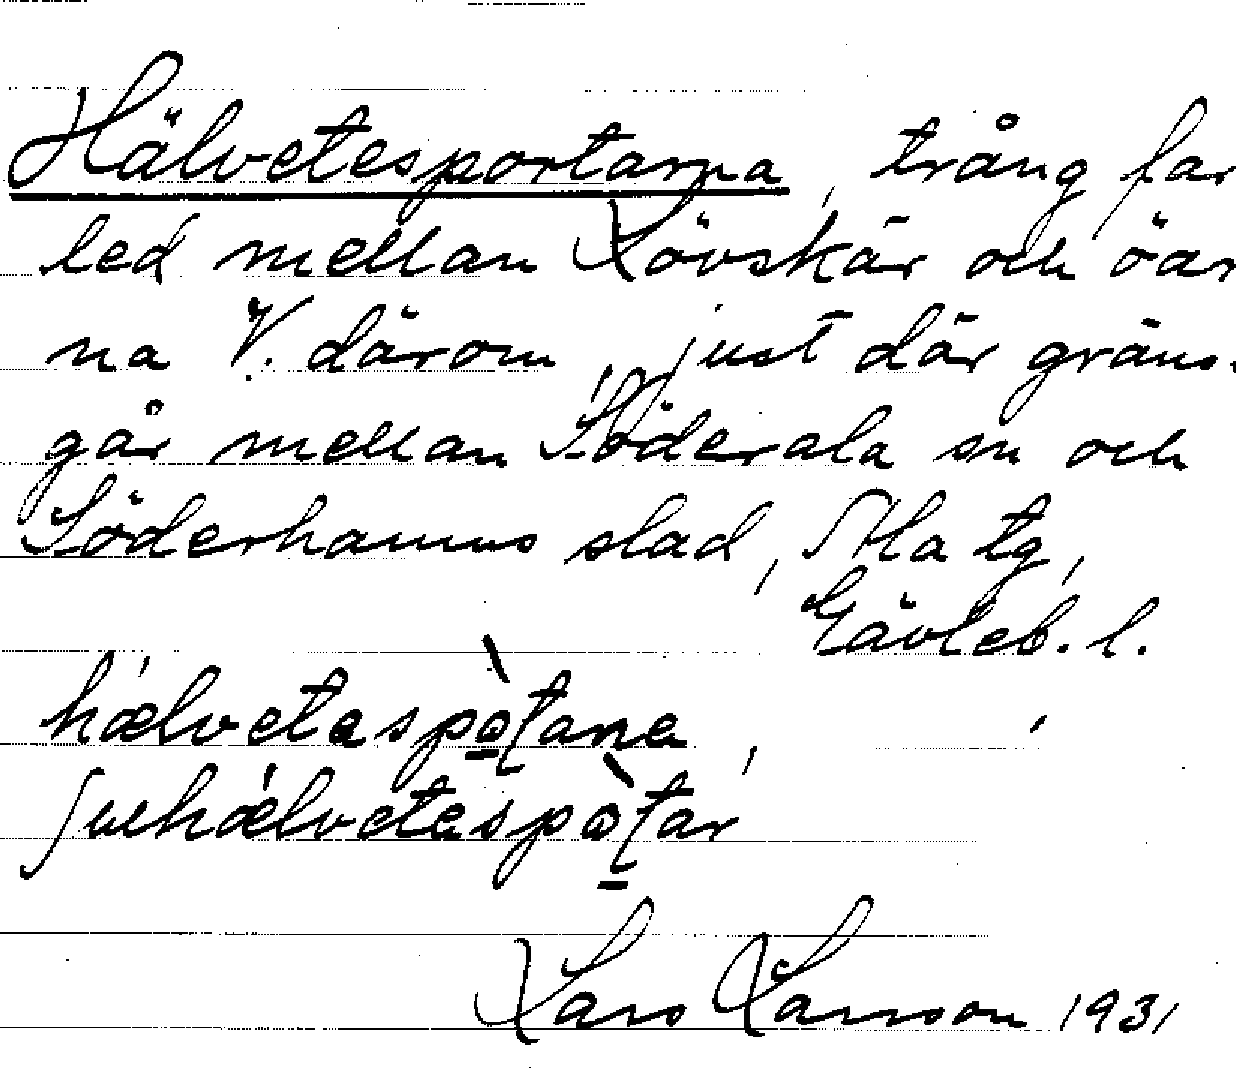 Hälvetesportarna, trång far
led mellan Lövskär och öar
na V. därom, just där gräns.
går mellan Söderala sn och
Söderhamns stad, Ala tg,
Gävleb. l.
hælvetespo̱ʈane,
hælvetespo̱ʈar
Lars Larsson 1931